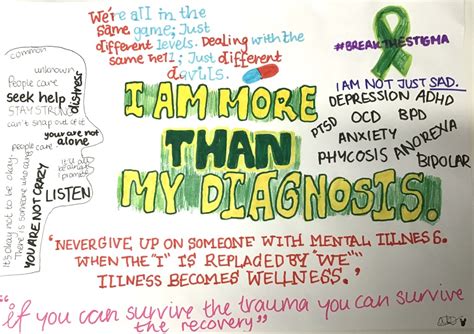 We're all in the
same game; Just
different levels. Dealing with the
same Hell; Just different
devils.
#BREAKTHESTIGMA
I AM NOT JUST SAD.
DEPRESSION ADHD
PTSD OCD BPD
ANXIETY ANOREXIA
PHYCOSIS BIPOLAR
common
unknown
People care
seek help
distress
STAY STRONG
can't snap out of it
you are not
alone
people care
it'll all
be alright
I promise
LISTEN
It's okay not to be okay.
There is someone who cares
YOU ARE NOT CRAZY
I AM MORE
THAN
MY DIAGNOSIS.
'NEVERGIVE UP ON SOMEONE WITH MENTAL ILLNESS.
WHEN THE "I" IS REPLACED BY "WE"
ILLNESS BECOMES WELLNESS.'
"if you can survive the trauma you can survive
the recovery"